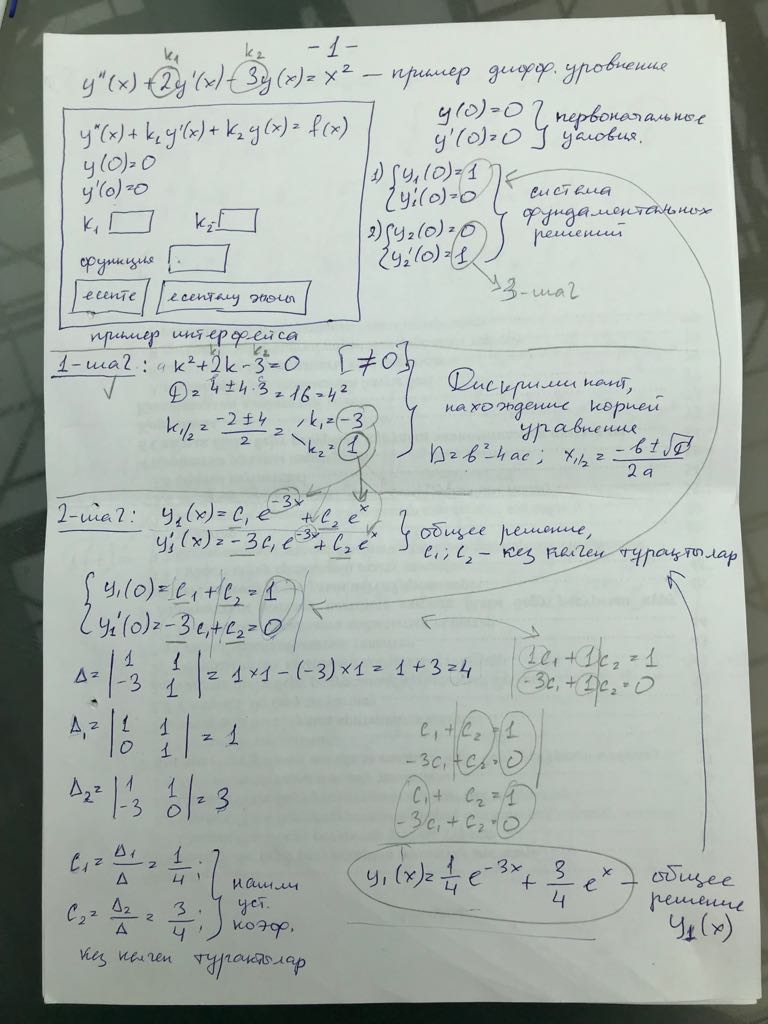 -1-
k₁ k₂
y''(x) + 2y'(x) - 3y(x) = x² — пример дифф. уровнение
y''(x) + k₁ y'(x) + k₂ y(x) = f(x)
y(0)=0
y'(0)=0
k₁ k₂
функция
есепте есептелу жолы
пример интерфейса
y(0)=0
y'(0)=0 } первоначальные условия.
1) { y₁(0)=1
y₁'(0)=0
2) { y₂(0)=0
y₂'(0)=1
} система
фундаментальных
решений
3-шаг
1-шаг: a k²+2k-3=0 [≠0]
k₁ k₂
D= 4±4·3 = 16 = 4²
k₁/₂ = (-2±4)/2 = k₁= -3
k₂= 1
Дискриминант,
нахождение корней
уравнение
D=в²-4ac; x₁/₂ = (-в±√D)/2a
2-шаг: y₁(x) = c₁ e^(-3x) + c₂ e^x
y₁'(x) = -3c₁ e^(-3x) + c₂ e^x
} общее решение,
c₁; c₂ - кез келген турақтылар
{ y₁(0) = c₁ + c₂ = 1
y₁'(0) = -3c₁ + c₂ = 0
Δ = | 1 1 |
| -3 1 | = 1×1-(-3)×1 = 1+3=4
1c₁+1c₂=1
-3c₁+1c₂=0
Δ₁= | 1 1 |
| 0 1 | = 1
c₁+c₂=1
-3c₁+c₂=0
Δ₂= | 1 1 |
| -3 0 | = 3
c₁+ c₂=1
-3c₁+c₂=0
c₁ = Δ₁/Δ = 1/4;
c₂ = Δ₂/Δ = 3/4;
} нашли
уст.
коэф.
кез келген турақтылар
y₁(x) = 1/4 e^(-3x) + 3/4 e^x — общее
решение
y₁(x)